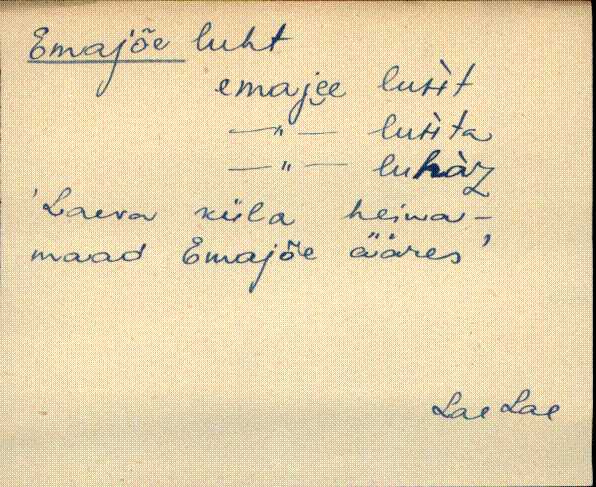 Emajõe luht
emajee luh̀t
—"— luh̀ta
—"— luhàz
'Laeva küla heina-
maad Emajõe ääres'
Lae Lae